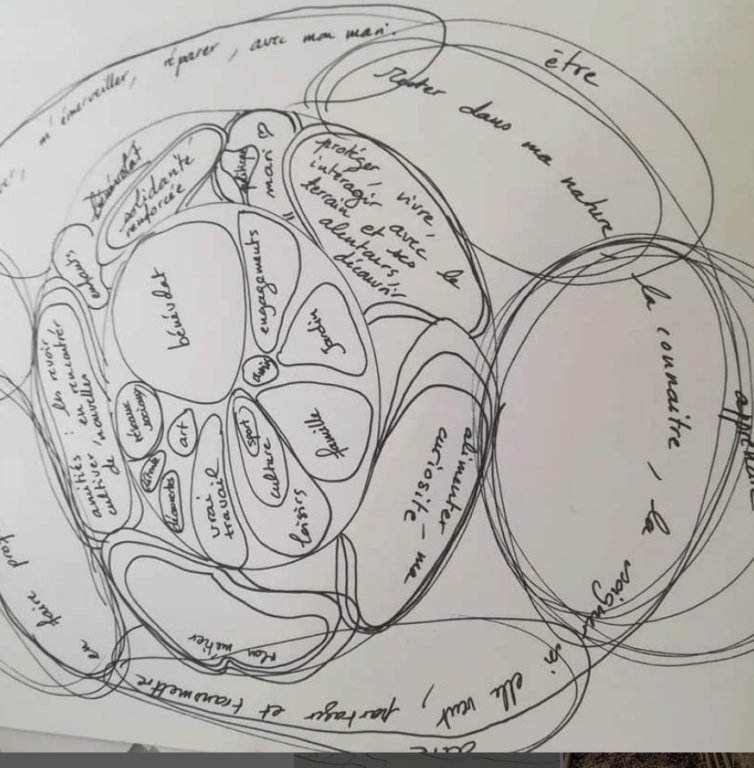 m'émerveiller, réparer, avec mon mari.
être
Rester dans ma nature
bénévolat
solidarité
renforcée
mari
protéger, vivre,
intéragir avec le
terrain et ses
alentours,
découvrir
enfants
bénévolat
engagements
jardin
amis
famille
sport
culture
loisirs
vrai
travail
art
réseaux
sociaux
amitiés : les revoir
en rencontrer
cultiver
de nouvelles
alimenter ma
curiosité
la connaître, la soigner
si elle veut, partager et transmettre
mon métier
en faire